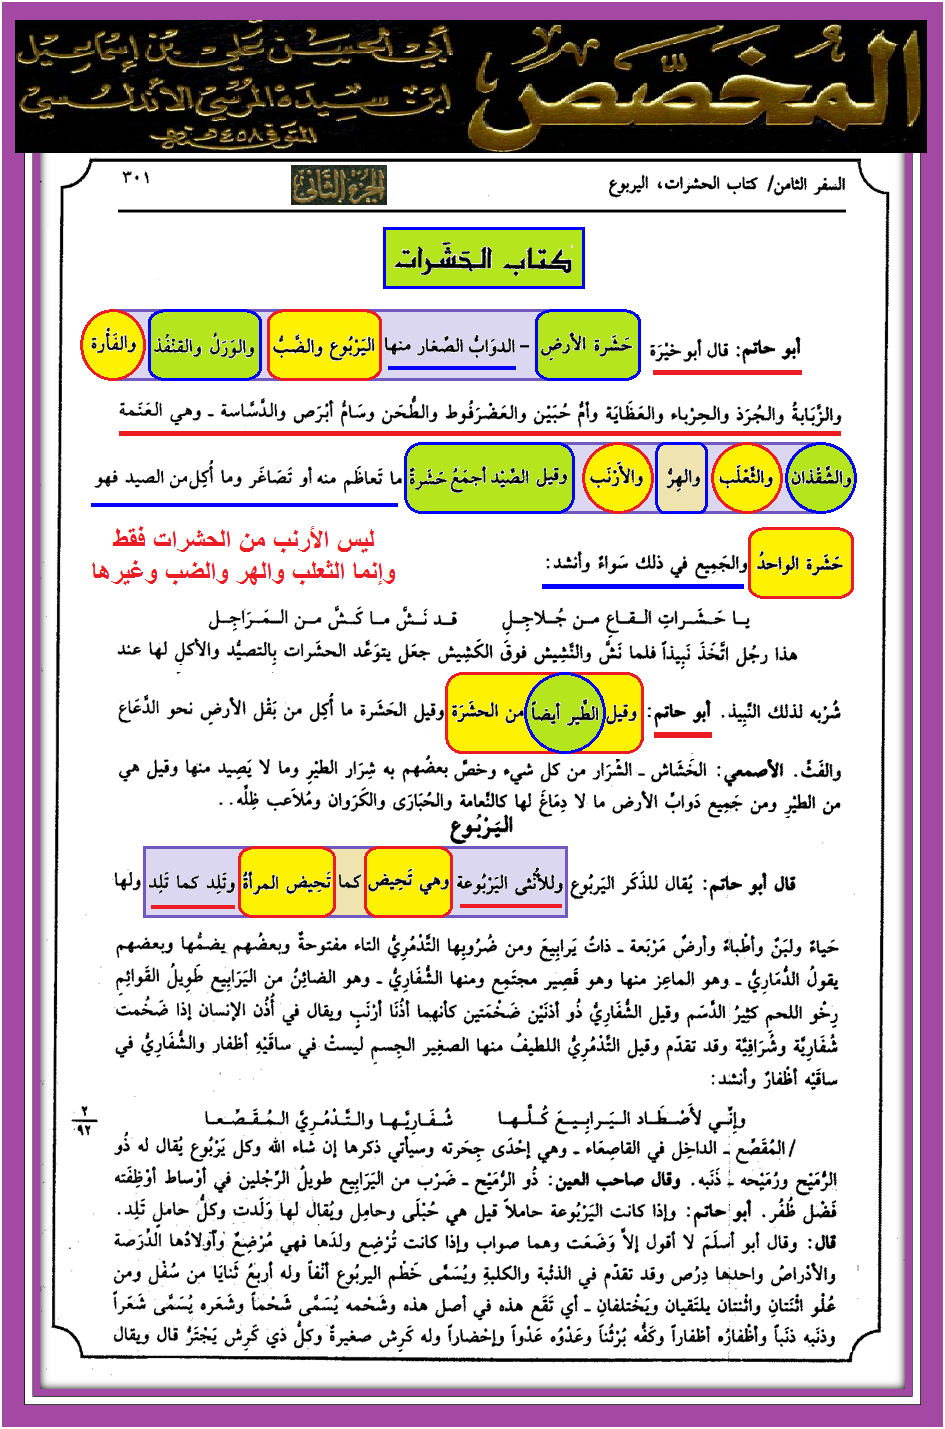 المخصص
أبي الحسن علي بن إسماعيل
ابن سيده المرسي الأندلسي
المتوفى ٤٥٨ هـ
السفر الثامن/ كتاب الحشرات، اليربوع
الجزء الثاني
٣٠١
كتاب الحَشَرات
أبو حاتم: قال أبو خيْرَة حَشَرة الأرضِ - الدوَابُّ الصِّغار منها اليَرْبُوع والضَّبُّ والوَرَلُ والقنْفُذ والفَأْرة
والزَّبَابةُ والجُرَذ والحِرْباء والعَظَاية وأمُّ حُبَيْن والعَضْرَفُوط والطُّحَن وسَامُّ أبْرَص والدَّسَّاسة ـ وهي العَنَمة
والشَّقْذان والثَّعْلَب والهِرُّ والأَرْنَب وقيل الصَّيْد أجمَعُ حَشَرةٌ ما تَعاظَم منه أو تَصَاغَر وما أُكِل من الصيد فهو
حَشَرة الواحدُ والجَمِيع في ذلك سَواءٌ وأنشد:
ليس الأرنب من الحشرات فقط
وإنما الثعلب والهر والضب وغيرها
يا حَشَراتِ القاعِ من جُلاجِلِ قد نَشَّ ما كَشَّ من المَرَاجِل
هذا رجُل اتَّخَذَ نَبِيذاً فلما نَشَّ والنَّشِيش فوقَ الكَشِيش جعَل يتوَعَّد الحشَرات بِالتصيُّد والأكلِ لها عند
شُرْبه لذلك النَّبِيذ. أبو حاتم: وقيل الطَّير أيضاً من الحشَرَة وقيل الحَشَرة ما أُكِل من بَقْل الأرضِ نحو الدُّعَاع
والفَثِّ. الأصمعي: الخَشَاش ـ الشِّرَار من كل شيء وخصَّ بعضُهم به شِرار الطيْرِ وما لا يَصِيد منها وقيل هي
من الطيْرِ ومن جَمِيع دَوابِّ الأرض ما لا دِمَاغَ لها كالنَّعامة والحُبَارَى والكَرَوان ومُلاَعب ظِلِّه..
اليَرْبُوع
قال أبو حاتم: يُقال للذَكَر اليَربُوع وللأُنْثى اليَرْبُوعة وهي تَحِيض كما تَحِيض المرأةُ وتَلِد كما تَلِد ولها
حَياءٌ ولبَنٌ وأطْباءٌ وأرضٌ مَرْبَعة ـ ذاتُ يَرابِيعَ ومن ضُروبِها التَّدْمُرِيُّ التاء مفتوحةٌ وبعضُهم يضمُّها وبعضهم
يقولُ الدُّمَارِيُّ ـ وهو الماعِز منها وهو قَصِير مجتَمِع ومنها الشُّفَارِيُّ ـ وهو الضائِنُ من اليَرَابِيع طَوِيلُ القَوائمِ
رِخْو اللحم كثِيرُ الدَّسَم وقيل الشُّفَارِيُّ ذو أُذنَيْن ضَخْمَتين كأنهما أُذُنَا أرْنَبٍ ويقال في أُذُن الإنسان إذا ضَخُمت
شُفَارِيَّة وشُرَافِيَّة وقد تقدّم وقيل التَّدْمُرِيُّ اللطيفُ منها الصغِير الجِسمِ ليستْ في ساقَيْهِ أظْفار والشُّفارِيُّ في
ساقَيْه أظْفارٌ وأنشد:
وإنِّي لأَصْطَاد اليَرابِيعَ كُلَّها شُفَارِيَّها والتَّدْمُرِيَّ المُقَصِّعا
٢
٩٢
/ المُقَصِّع ـ الداخِل في القاصِعَاء ـ وهي إحْدَى جِحَرته وسيأتي ذكرها إن شاء الله وكل يَرْبُوع يُقال له ذُو
الرُّمَيْح ورُمَيْحه ـ ذَنَبه. وقال صاحب العين: ذُو الرُّمَيْح ـ ضَرْب من اليَرَابِيع طويلُ الرِّجْلين في أوْساط أوْظِفَته
فَضْل ظُفُر. أبو حاتم: وإذا كانت اليَرْبُوعة حاملاً قيل هي حُبْلَى وحامِل ويُقال لها وَلَدت وكلُّ حاملٍ تَلِد.
قال: وقال أبو أسلَمَ لا أقول إلاَّ وَضَعَت وهما صواب وإذا كانت تُرْضِع ولدَها فهي مُرْضِعٌ وأوْلادُها الدِّرَصة
والأدْراصُ واحدها دِرْص وقد تقدّم في الذئْبة والكلبةِ ويُسَمَّى خَطْم اليربوع أنْفاً وله أربعُ ثَنايَا من سُفْل ومن
عُلْو اثنَتانِ واثنتان يلتَقيان ويَخْتلِفانِ ـ أي تَقَع هذه في أصل هذه وشَحْمه يُسَمَّى شَحْماً وشَعَره يُسَمَّى شَعَراً
وذنَبه ذنَباً وأظْفارُه أظْفاراً وكَفُّه بُرْثُناً وعَدْوُه عَدْواً وإحْضاراً وله كَرِش صغيرةٌ وكلُّ ذي كَرِش يَجْتَرُّ قال ويقال